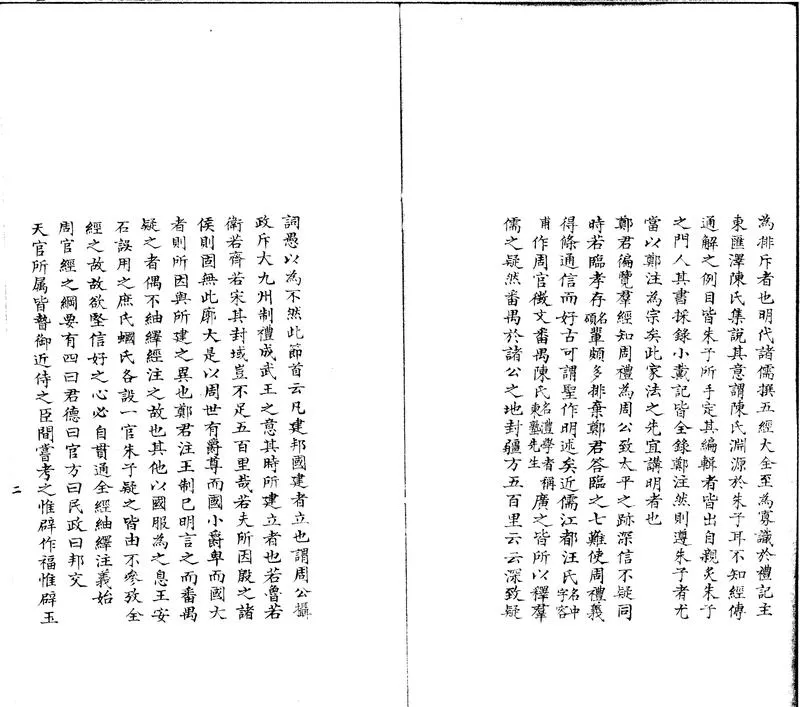 為排斥者也明代諸儒撰五經大全至為寡識於禮記主
東匯澤陳氏集說其意謂陳氏淵源於朱子耳不知經傳
通解之例目皆朱子所手定其編輯者皆出自親炙朱子
之門人其書採錄小戴記皆全錄鄭注然則遵朱子者尤
當以鄭注為宗矣此家法之先宜講明者也
鄭君徧覽羣經知周禮為周公致太平之跡深信不疑同
時若臨孝存名碩輩頗多排棄鄭君答臨之七難使周禮義
得條通信而好古可謂聖作明述矣近儒江都汪氏名中字容
甫作周官徵文番禺陳氏名澧學者稱東塾先生廣之皆所以釋羣
儒之疑然番禺於諸公之地封疆方五百里云云深致疑
詞愚以為不然此節首云凡建邦國建者立也謂周公攝
政斥大九州制禮成武王之意其時所建立者也若魯若
衛若齊若宋其封域豈不足五百里哉若夫所因殷之諸
侯則固無此廓大是以周世有爵尊而國小爵卑而國大
者則所因與所建之異也鄭君注王制已明言之而番禺
疑之者偶不紬繹經注之故也其他以國服為之息王安
石誤用之庶氏蟈氏各設一官朱子疑之皆由不參攷全
經之故故欲堅信好之心必自貫通全經紬繹注義始
周官經之綱要有四曰君德曰官方曰民政曰邦交
天官所属皆暬御近侍之臣閒嘗考之惟辟作福惟辟玉
二